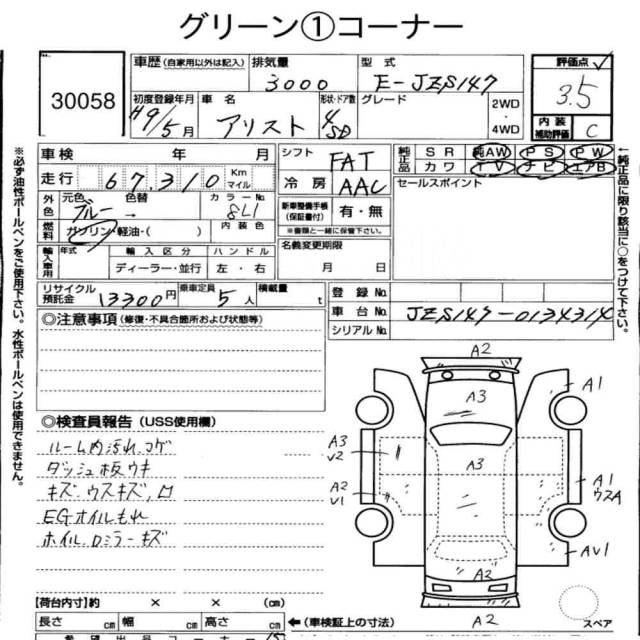 グリーン①コーナー
30058
車歴 (自家用以外は記入) 排気量 型式
3000 E-JZS147
評価点 3.5
初度登録年月 車名 形状・ドア数 グレード 2WD
H9/5月 アリスト 4 SD ・4WD
内装補助評価 C
車検 年 月 シフト FAT
純正品 SR 純AW PS PW
カワ TV ナビ エアB
走行 67,310 Km マイル 冷房 AAC
セールスポイント
外色 元色 色替 カラーNo. 新車整備手帳(保証書付) 有・無
ブルー → 8L1
※書類と一緒に保管下さい。
燃料 ガソリン・軽油・( ) 内装色 名義変更期限
輸入車用 年式 輸入区分 ハンドル
ディーラー・並行 左・右 月 日
リサイクル預託金 13300円 乗車定員 5人 積載量 t 登録No.
車台No. JZS147-0134314
シリアルNo.
◎注意事項 (修復・不具合箇所および状態等)
◎検査員報告 (USS使用欄)
ルーム内汚れ コゲ
ダッシュ板ウキ
キズ・ウスキズ, 凹
EGオイルもれ
ホイル, ロミラーキズ
A2
A3
A1
A3
V2
A3
A2
V1
A1
ウスA
AV1
A2
A2
スペア
【荷台内寸】約 × × (cm)
長さ cm 幅 cm 高さ cm ←(車検証上の寸法)
※必ず油性ボールペンをご使用下さい。水性ボールペンは使用できません。
←純正品に限り該当に○をつけて下さい。